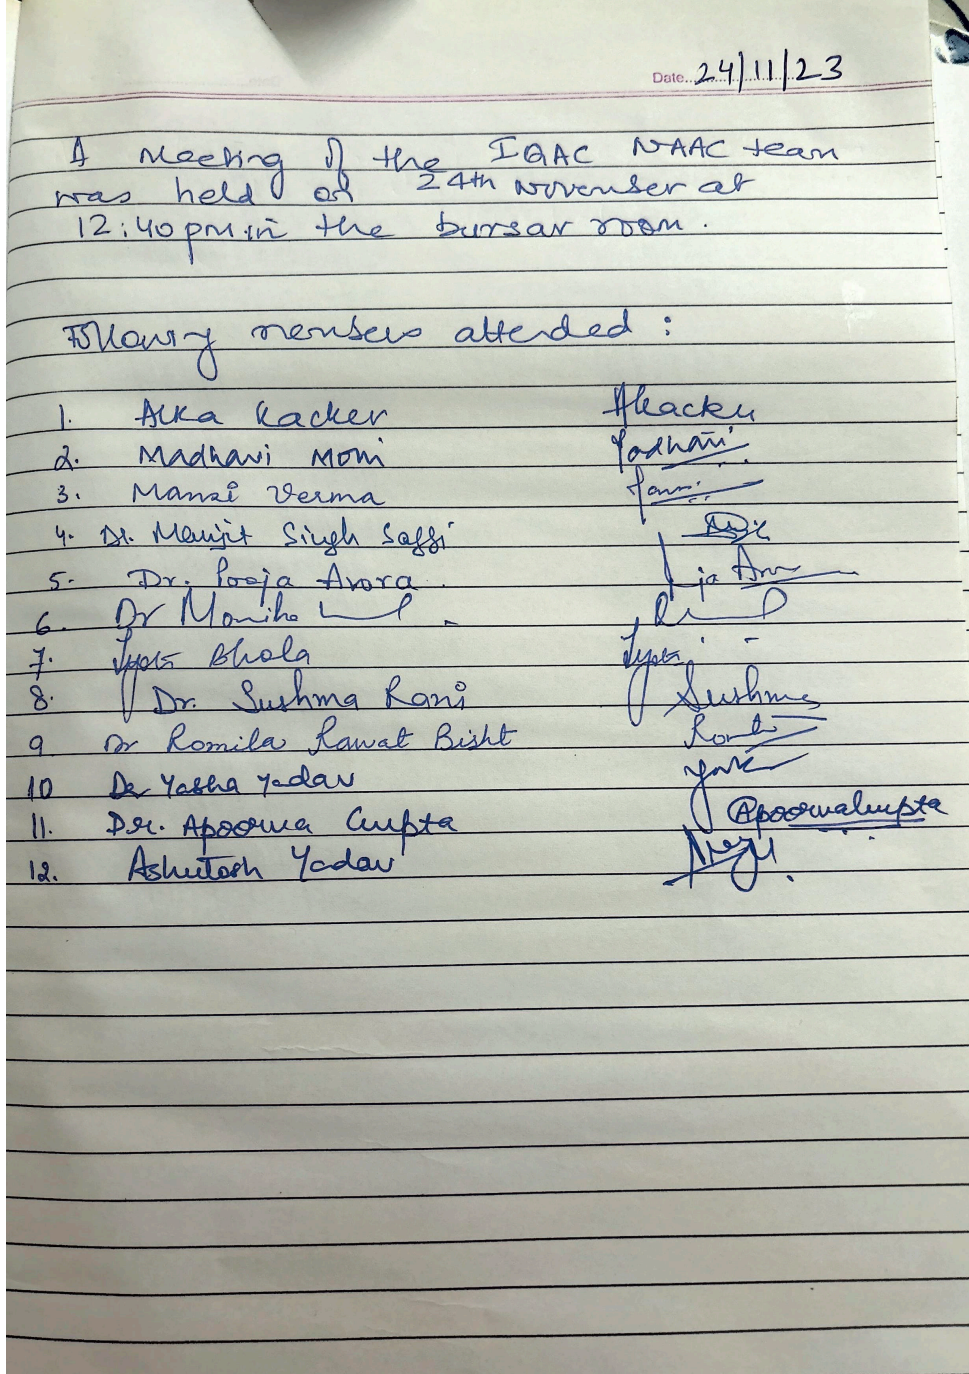 Date..24/11/23
A Meeting of the IQAC NAAC team
was held on 24th November at
12:40 pm in the bursar room.
Following members attended :
1. Alka Kacker AKacker
2. Madhavi Moni Madhavi
3. Mansi Verma
4. Dr. Manjit Singh Saggi
5. Dr. Pooja Arora
6. Dr Monika
7. Jyoti Bhola Jyoti
8. Dr. Sushma Rani Sushma
9 Dr Romila Rawat Bisht
10 Dr Yasha Yadav
11. Dr. Apoorva Gupta ApoorvaGupta
12. Ashutosh Yadav